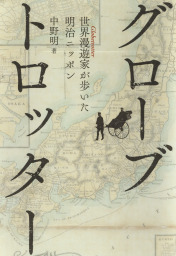 グローブ
トロッター
Globetrotter
世界漫遊家が歩いた
明治ニッポン
中野明 著